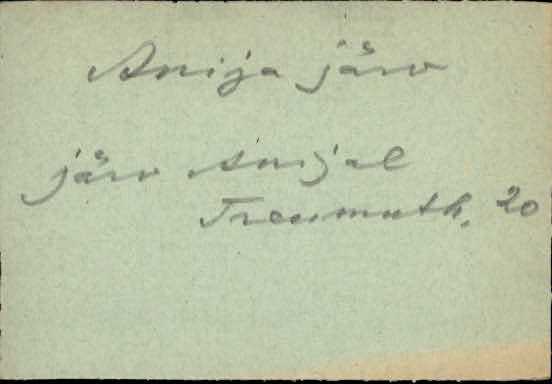 Anija järv
järv Anijal
Treumuth, 20